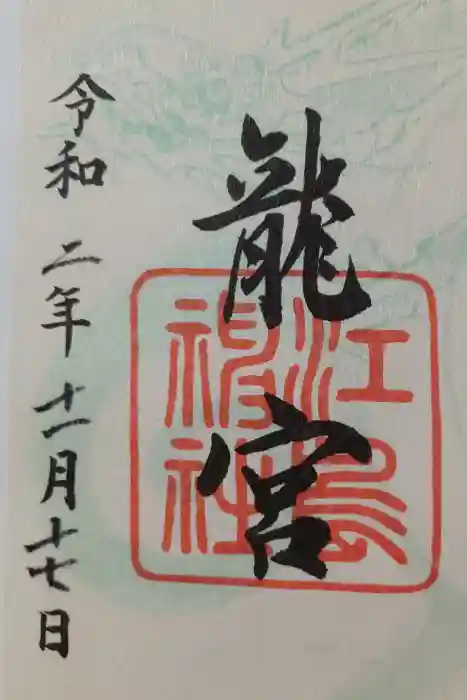 龍宮
江島神社
令和二年十一月十七日